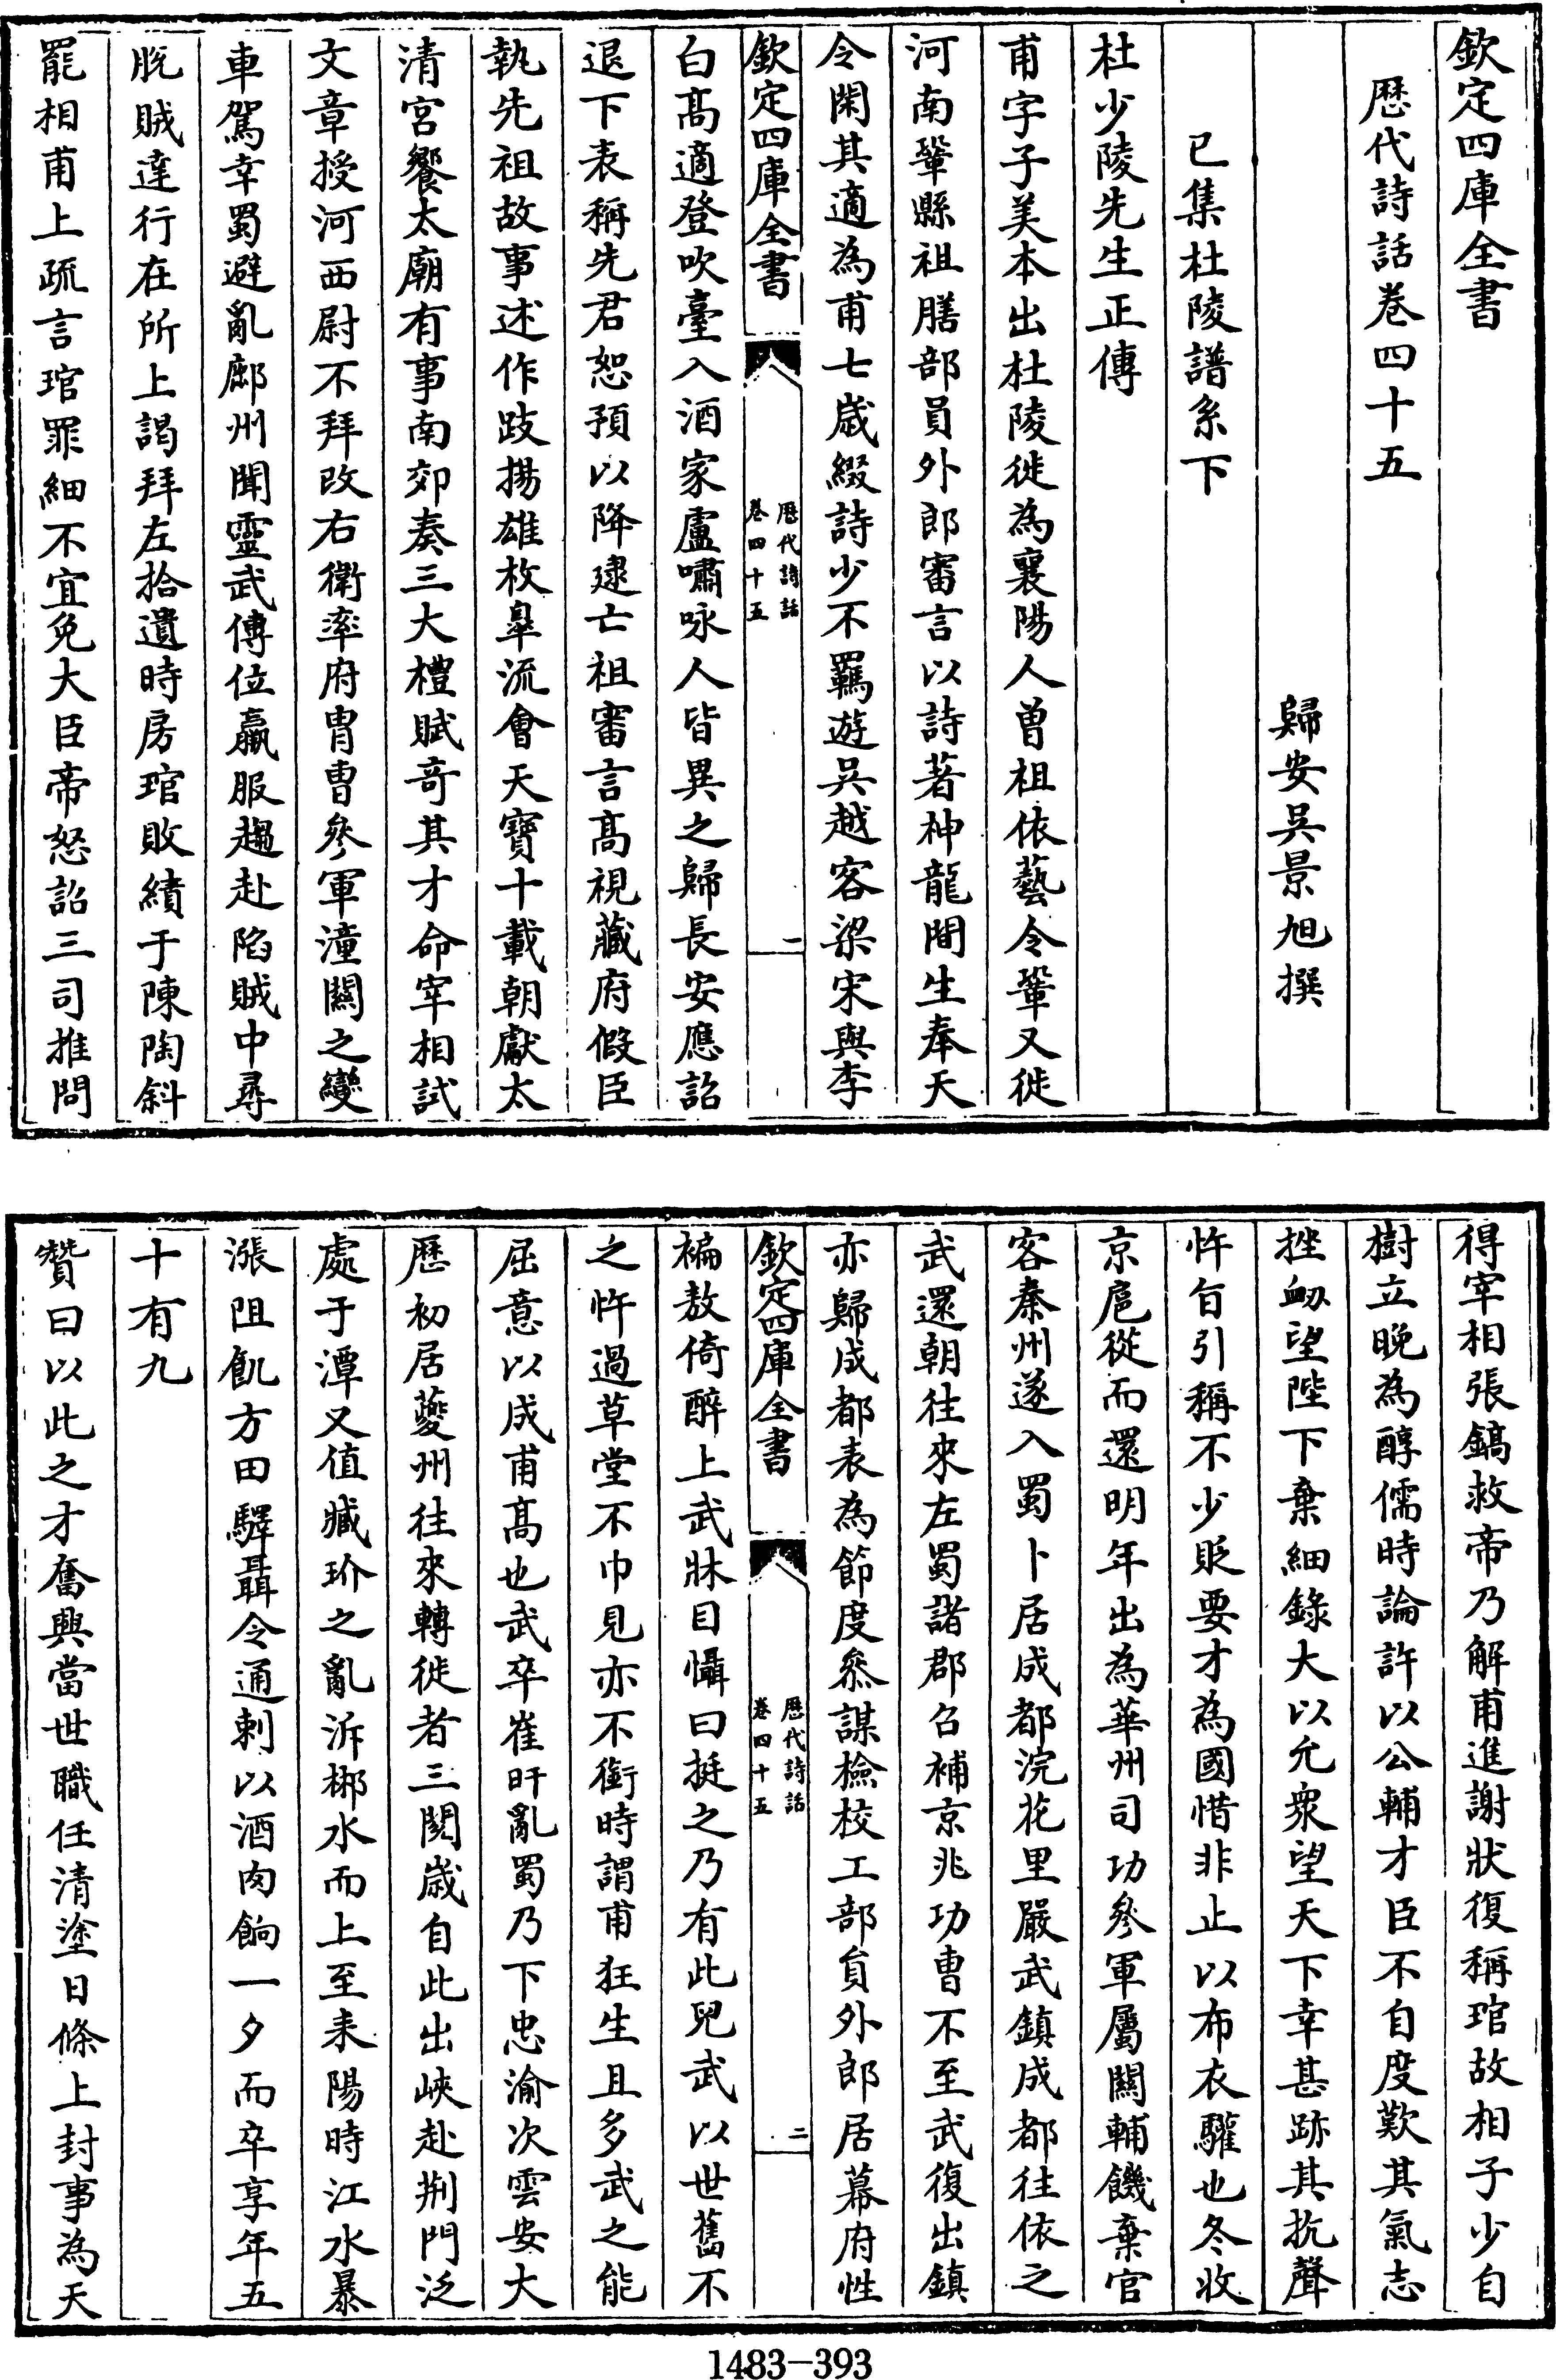 欽定四庫全書
歷代詩話卷四十五
歸安吳景旭撰
已集杜陵譜系下
杜少陵先生正傳
甫字子美本出杜陵徙為襄陽人曾祖依藝令鞏又徙
河南鞏縣祖膳部員外郎審言以詩著神龍間生奉天
令閑其適為甫七歲綴詩少不羈遊吳越客梁宋與李
欽定四庫全書
歷代詩話
卷四十五
一
白高適登吹臺入酒家盧嘯咏人皆異之歸長安應詔
退下表稱先君恕預以降逮亡祖審言高視藏府假臣
執先祖故事述作跂揚雄枚臯流會天寶十載朝獻太
清宮饗太廟有事南郊奏三大禮賦竒其才命宰相試
文章授河西尉不拜改右衛率府胄曹參軍潼關之變
車駕幸蜀避亂鄜州聞靈武傳位羸服趨赴陷賊中尋
脫賊達行在所上謁拜左拾遺時房琯敗績于陳陶斜
罷相甫上疏言琯罪細不宜免大臣帝怒詔三司推問
得宰相張鎬救帝乃解甫進謝狀復稱琯故相子少自
樹立晚為醇儒時論許以公輔才臣不自度歎其氣志
挫衂望陛下棄細錄大以允衆望天下幸甚跡其抗聲
忤旨引稱不少貶要才為國惜非止以布衣驩也冬收
京扈從而還明年出為華州司功參軍屬關輔饑棄官
客秦州遂入蜀卜居成都浣花里嚴武鎮成都往依之
武還朝往來左蜀諸郡召補京兆功曹不至武復出鎮
亦歸成都表為節度叅謀檢校工部員外郎居幕府性
欽定四庫全書
歷代詩話
卷四十五
二
褊敖倚醉上武牀目懾曰挺之乃有此兒武以世舊不
之忤過草堂不巾見亦不銜時謂甫狂生且多武之能
屈意以成甫高也武卒崔旰亂蜀乃下忠渝次雲安大
歷初居夔州往來轉徙者三閱歲自此出峽赴荆門泛
處于潭又值臧玠之亂泝郴水而上至耒陽時江水暴
漲阻飢方田驛聶令通刺以酒肉餉一夕而卒享年五
十有九
贊曰以此之才奮興當世職任清塗日條上封事為天
1483-393